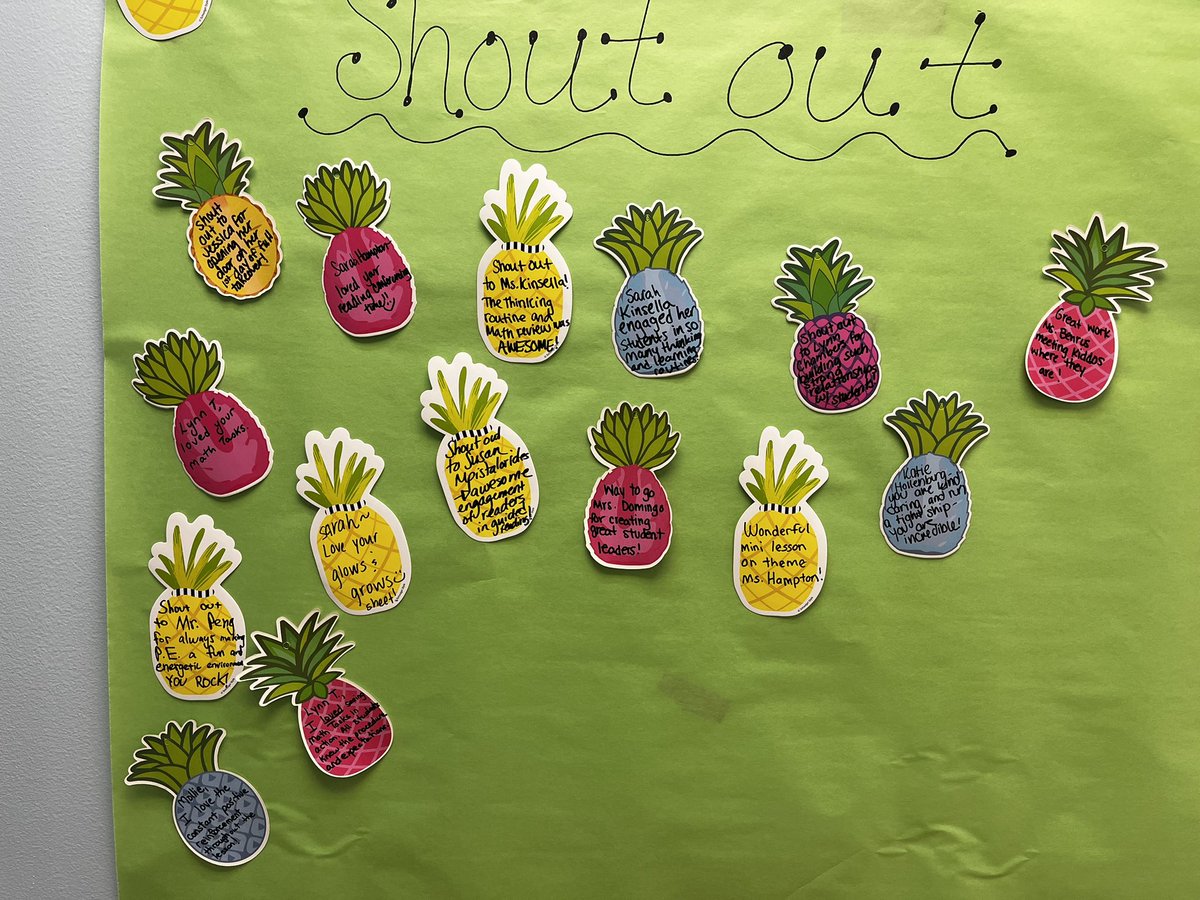 Shout out
Shout
out to
Jessica for
opening her
door on her
1st day of full
takeover!
Sarai Hampton
loved your
reading conferring
time!
Shout out
to Ms. Kinsella!
The thinking
routine and
Math review was
AWESOME!
Sarah
Kinsella
engaged her
students in so
many thinking
and learning
routines
Shout out
to Lynn
for
building such
strong
relationships
w/ students!
Great work
Ms. Benrus
meeting kiddos
where they
are!
Lynn T,
loved your
Math Tasks.
Sarah~
Love your
glows &
grows
sheet!
Shout out
to Susan
awesome
engagement
of readers
in guided
reading!
Way to go
Mrs. Domingo
for creating
great student
leaders!
Wonderful
mini lesson
on theme
Ms. Hampton!
Katie
Hollenburg
you are kind,
daring and run
a tight ship
you are
incredible!
Shout out
to Mr. Peng
for always making
P.E. a fun and
energetic environment
YOU ROCK!
Lynn T,
I loved seeing
Math Tasks in
action. All students
know the procedures
and expectations!
Mollie,
I love the
constant positive
reinforcement
throughout the
lesson!